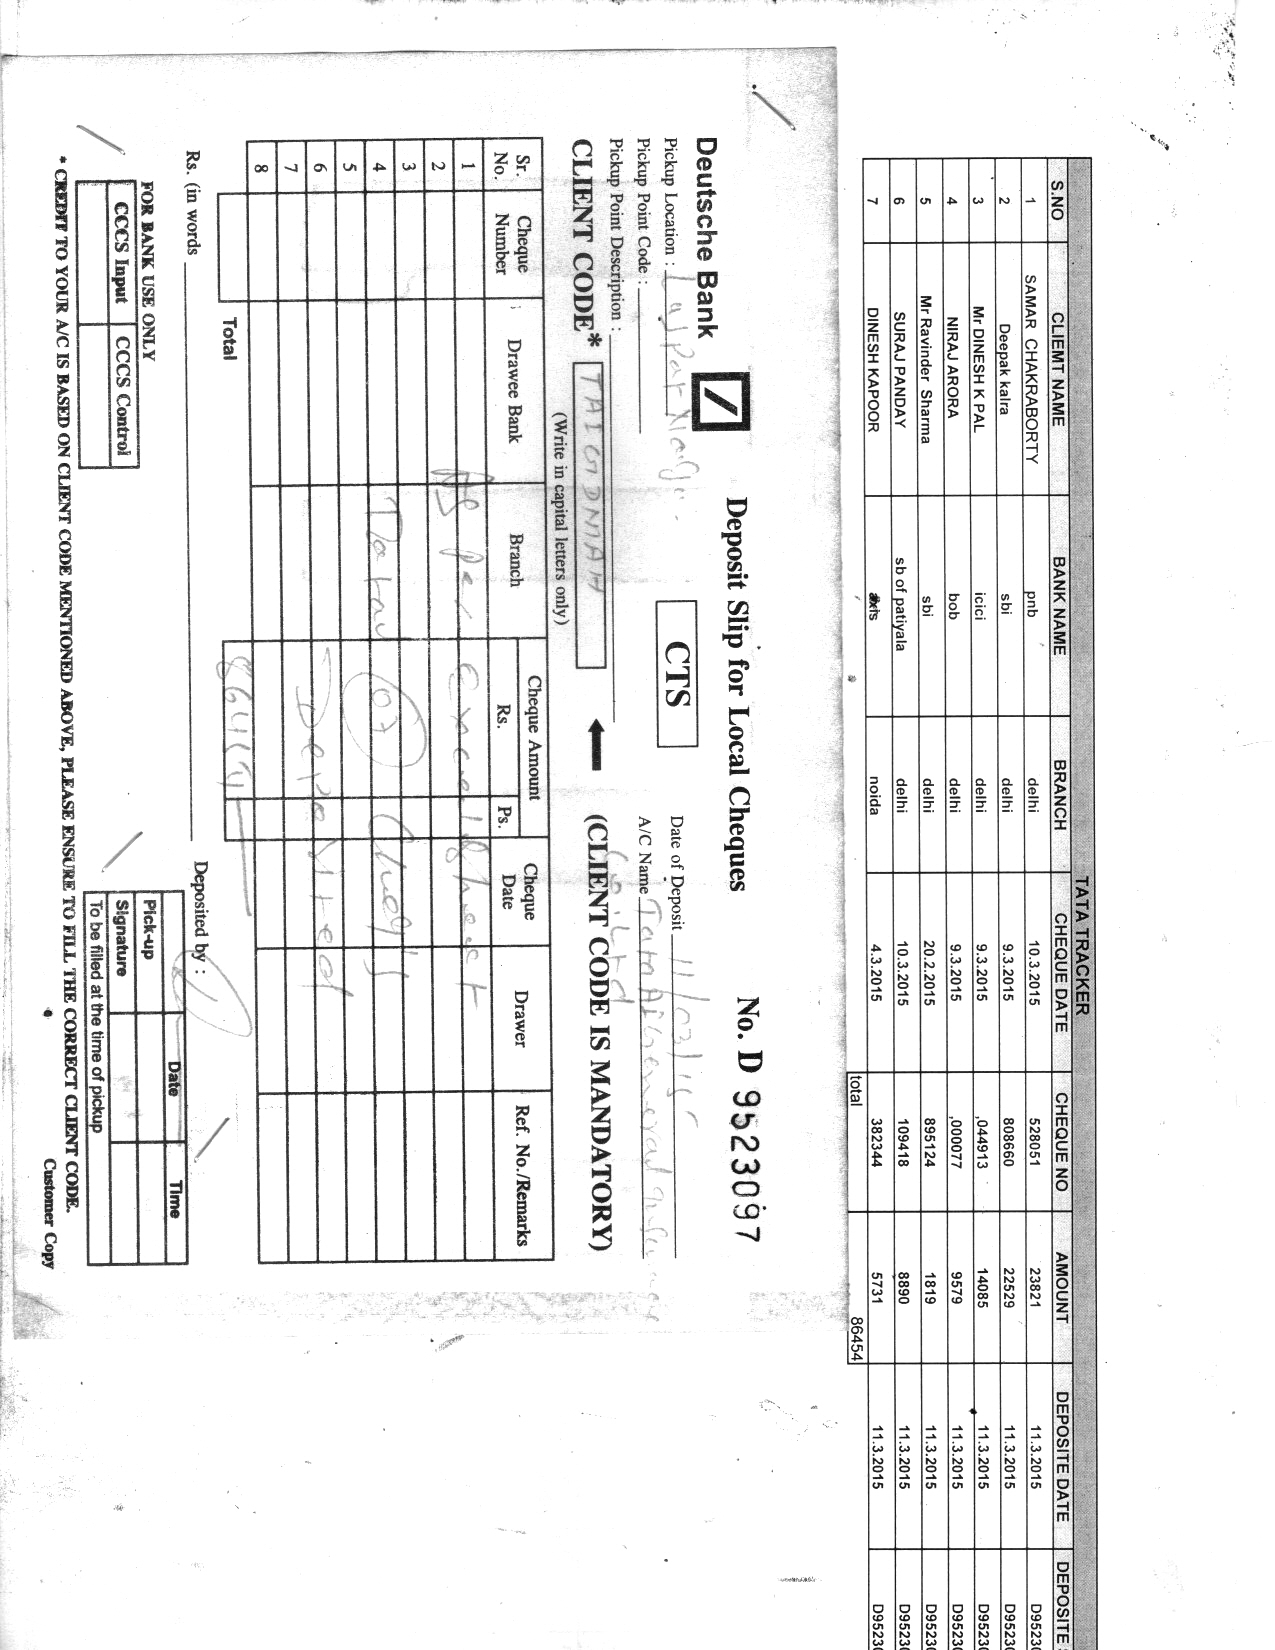 TATA TRACKER
S.NO CLIEMT NAME BANK NAME BRANCH CHEQUE DATE CHEQUE NO AMOUNT DEPOSITE DATE DEPOSITE
1 SAMAR CHAKRABORTY pnb delhi 10.3.2015 528051 23821 11.3.2015 D9523
2 Deepak kalra sbi delhi 9.3.2015 808660 22529 11.3.2015 D9523
3 Mr DINESH K PAL icici delhi 9.3.2015 ,044913 14085 11.3.2015 D9523
4 NIRAJ ARORA bob delhi 9.3.2015 ,000077 9579 11.3.2015 D9523
5 Mr Ravinder Sharma sbi delhi 20.2.2015 895124 1819 11.3.2015 D9523
6 SURAJ PANDAY sb of patiyala delhi 10.3.2015 109418 8890 11.3.2015 D9523
7 DINESH KAPOOR axis noida 4.3.2015 382344 5731 11.3.2015 D9523
total 86454
Deutsche Bank
Deposit Slip for Local Cheques
No. D 9523097
CTS
Pickup Location : Lajpat
Date of Deposit 11/03/15
Pickup Point Code :
A/C Name Tata AIG General
Pickup Point Description :
CLIENT CODE* TAIGDMAH (CLIENT CODE IS MANDATORY)
(Write in capital letters only)
Sr. No. Cheque Number Drawee Bank Branch Cheque Amount Rs. Ps. Cheque Date Drawer Ref. No./Remarks
1
2
3
4
5
6
7
8
As per Excel Sheet
Total 07
Total
Rs. (in words
Deposited by :
FOR BANK USE ONLY
CCCS Input CCCS Control
Date Time
Pick-up
Signature
To be filled at the time of pickup
* CREDIT TO YOUR A/C IS BASED ON CLIENT CODE MENTIONED ABOVE, PLEASE ENSURE TO FILL THE CORRECT CLIENT CODE.
Customer Copy